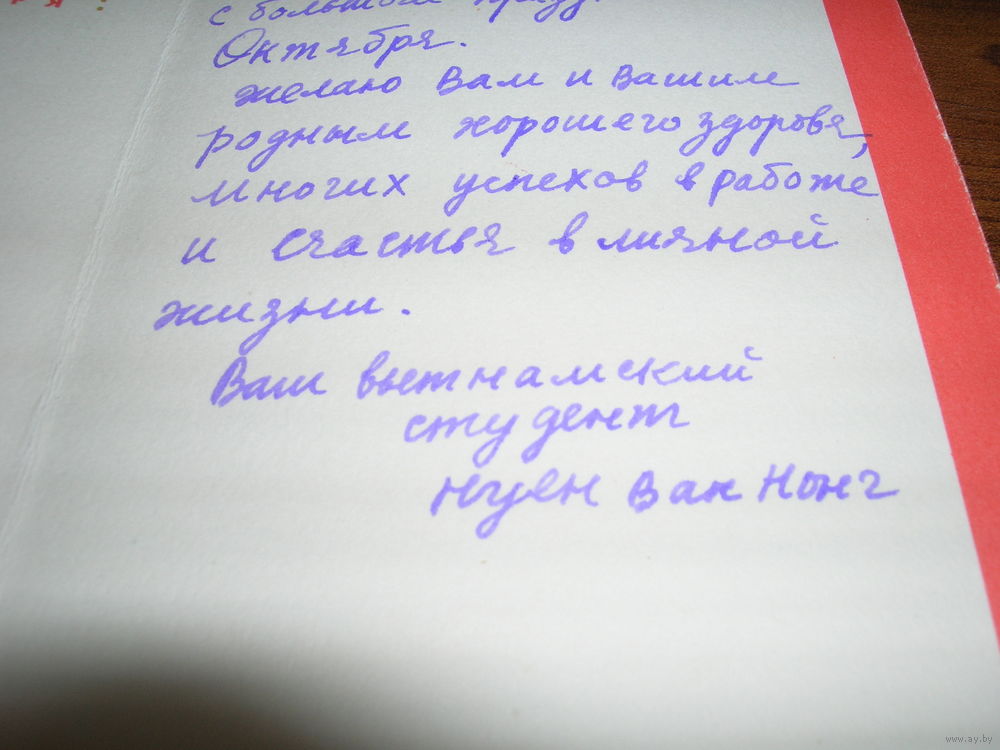 с большим
Октября.
желаю Вам и Вашим
родным хорошего здоровья,
многих успехов в работе
и счастья в личной
жизни.
Ваш вьетнамский
студент
Нуен Ван Нонг
www.ay.by